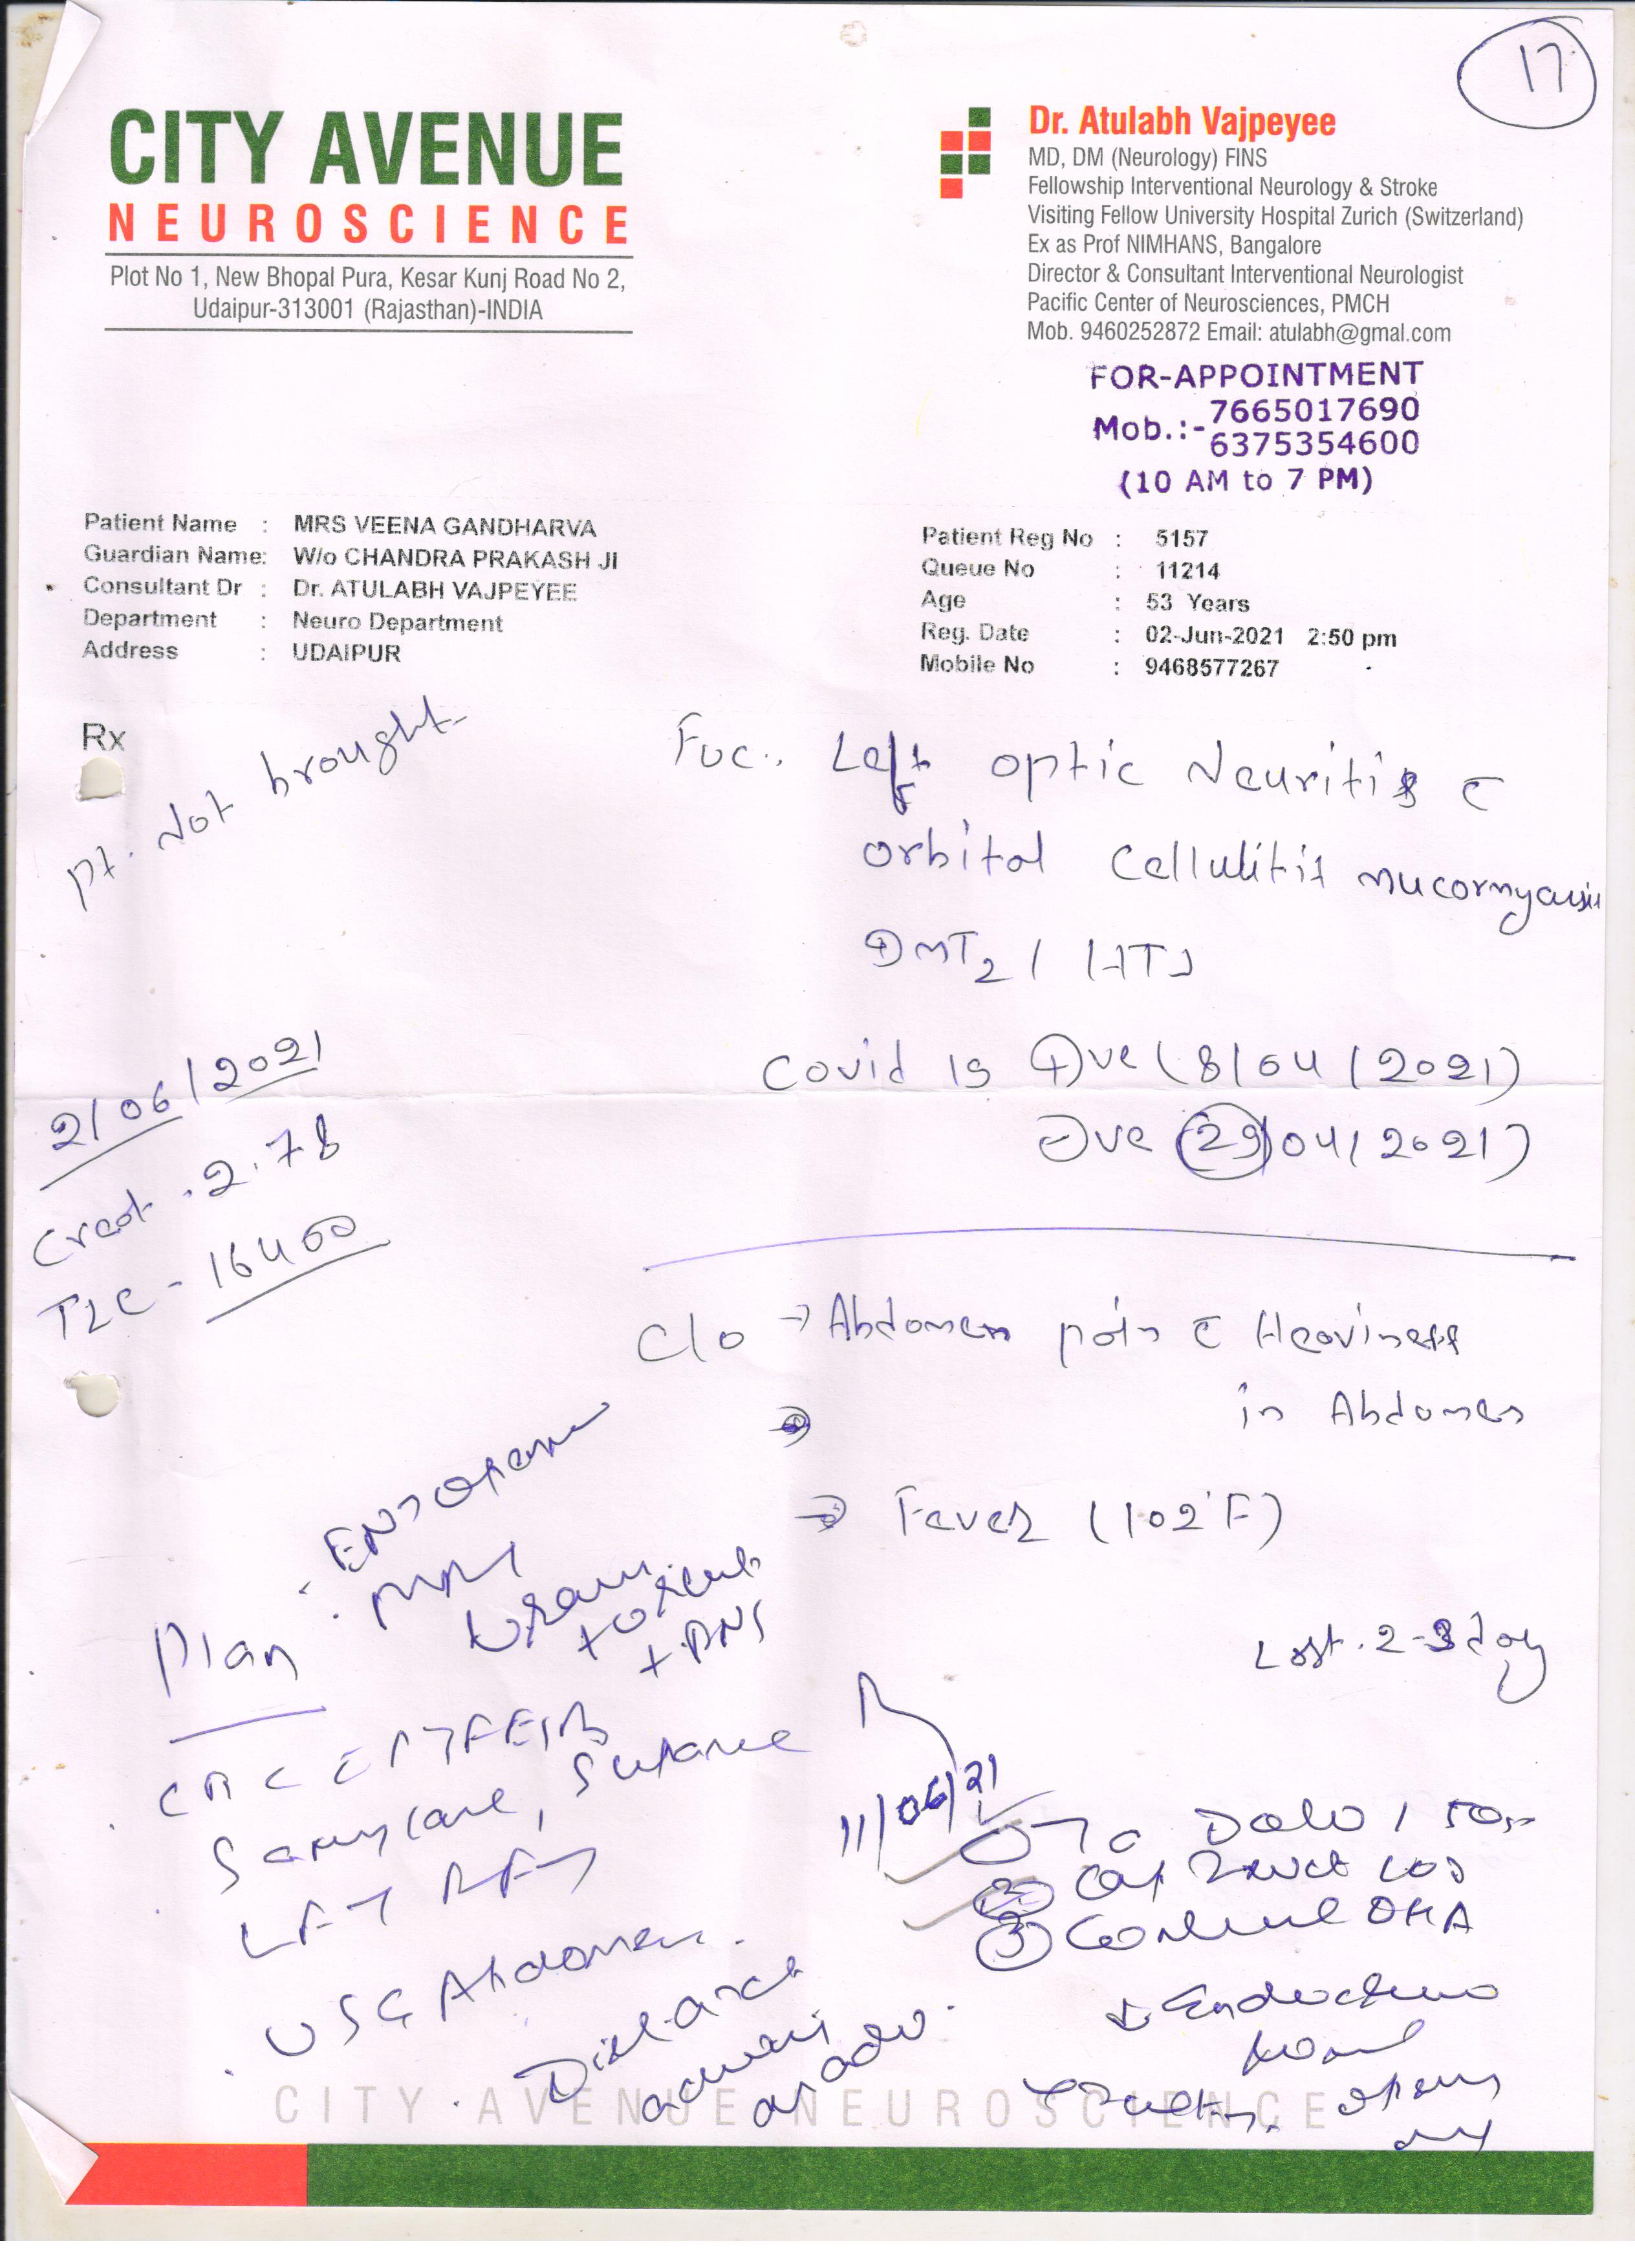 17
CITY AVENUE
NEUROSCIENCE
Plot No 1, New Bhopal Pura, Kesar Kunj Road No 2,
Udaipur-313001 (Rajasthan)-INDIA
Dr. Atulabh Vajpeyee
MD, DM (Neurology) FINS
Fellowship Interventional Neurology & Stroke
Visiting Fellow University Hospital Zurich (Switzerland)
Ex as Prof NIMHANS, Bangalore
Director & Consultant Interventional Neurologist
Pacific Center of Neurosciences, PMCH
Mob. 9460252872 Email: atulabh@gmal.com
FOR-APPOINTMENT
Mob.:- 7665017690
6375354600
(10 AM to 7 PM)
Patient Name : MRS VEENA GANDHARVA
Guardian Name: W/o CHANDRA PRAKASH JI
Consultant Dr : Dr. ATULABH VAJPEYEE
Department : Neuro Department
Address : UDAIPUR
Patient Reg No : 5157
Queue No : 11214
Age : 53 Years
Reg. Date : 02-Jun-2021 2:50 pm
Mobile No : 9468577267
Rx
pt. Not brought
Fuc.. Left optic Neuritis c̄
orbital Cellulitis
DMT2 / HTN
Covid 19 ⊕ve (8/04/2021)
⊖ve (29/04/2021)
2/06/2021
Creat. 2.78
TLC - 16400
C/o → Abdomen pain c̄ Heaviness
in Abdomen
→ Fever (102°F)
Last. 2-3 day
Plan
ENT
MRI
Brain
+ Orbit
+ PNS
CBC
LFT RFT
USG Abdomen.
11/06/21
① T
② Cap
③ Continue OHA
CITY AVENUE NEUROSCIENCE